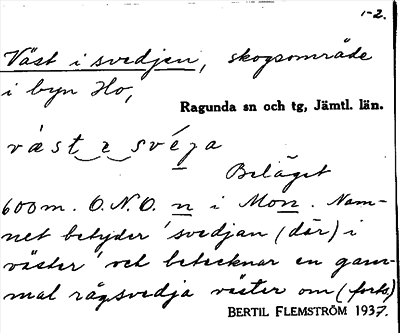 1-2.
Väst i svedjen, skogsområde
i byn Ho,
Ragunda sn och tg, Jämtl. län.
väst ɩ svéȷa
Beläget
600 m. O.N.O. n i Mon. Nam-
net betyder 'svedjan (där) i
väster' och betecknar en gam-
mal rågsvedja väster om (forts)
BERTIL FLEMSTRÖM 1937.